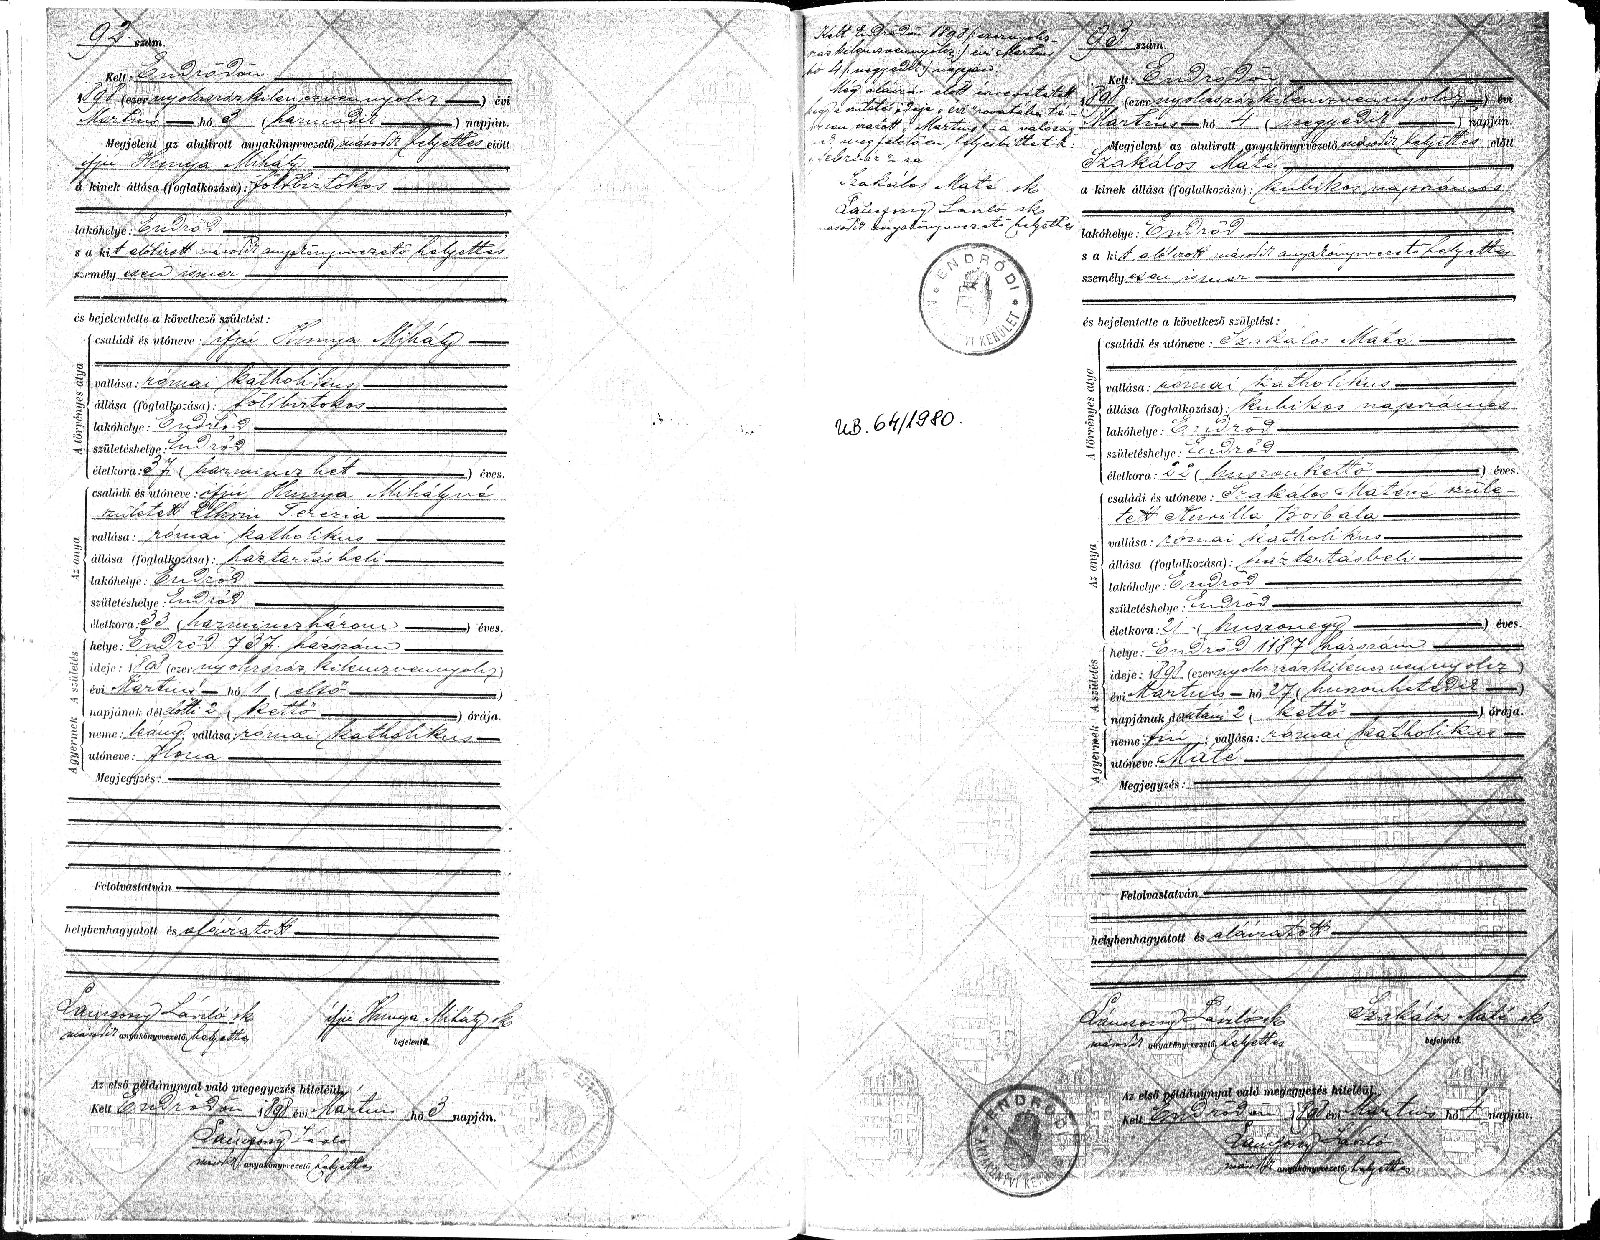 92 szám.
Kelt: Endrődön
1898 (ezernyolcszázkilenczvennyolcz) évi
Martius hó 3 (harmadik) napján.
Megjelent az alulirott anyakönyvvezető másodk helyettes előtt
ifju Hunya Mihály
a kinek állása (foglalkozása): földbirtokos
lakóhelye: Endrőd
s a kit alólirott másodk anyakönyvvezető helyettes
személyesen ismer
és bejelentette a következő születést:
A törvényes atya
családi és utóneve: ifju Hunya Mihály
vallása: római katholikus
állása (foglalkozása): földbirtokos
lakóhelye: Endrőd
születéshelye: Endrőd
életkora: 37 (harmincz hét) éves.
Az anya
családi és utóneve: ifju Hunya Mihályné
született Terezia
vallása: római katholikus
állása (foglalkozása): háztartásbeli
lakóhelye: Endrőd
születéshelye: Endrőd
életkora: 33 (harminczhárom) éves.
A születés
helye: Endrőd 737. házszám
ideje: 1898 (ezernyolcszáz kilenczvennyolcz)
évi Martius hó 1 (első)
napjának délelőtti 2 (kettő) órája.
A gyermek
neme: leány, vallása: római katholikus
utóneve: Ilona
Megjegyzés:
Felolvastatván
helybenhagyatott és aláiratott
László sk
másodk anyakönyvvezető helyettes
ifju Hunya Mihály sk
bejelentő.
Az első példánynyal való megegyezés hiteléül,
Kelt Endrődön 1898 évi Martius hó 3 napján.
László
másodk anyakönyvvezető helyettes
Kelt Endrődön 1898 (ezernyolcz-
százkilenczvennyolcz) évi Martius
hó 4 (negyedik) napján.
Február 27
Szakálos Máté sk
László sk
másodk anyakönyvvezető helyettes
ENDRŐDI
KERÜLET
UB. 64/1980.
93 szám
Kelt: Endrődön
1898 (ezernyolcszázkilenczvennyolcz) évi
Martius hó 4 (negyedik) napján.
Megjelent az alulirott anyakönyvvezető másodk helyettes előtt
Szakálos Máté
a kinek állása (foglalkozása): kubikos napszámos
lakóhelye: Endrőd
s a kit alólirott másodk anyakönyvvezető helyettes
személyesen ismer
és bejelentette a következő születést:
A törvényes atya
családi és utóneve: Szakálos Máté
vallása: római katholikus
állása (foglalkozása): kubikos napszámos
lakóhelye: Endrőd
születéshelye: Endrőd
életkora: 22 (huszonkettő) éves.
Az anya
családi és utóneve: Szakálos Máténé szüle-
tett Borbála
vallása: római katholikus
állása (foglalkozása): háztartásbeli
lakóhelye: Endrőd
születéshelye: Endrőd
életkora: 21 (huszonegy) éves.
A születés
helye: Endrőd 1187 házszám
ideje: 1898 (ezernyolcszázkilenczvennyolcz)
évi Martius hó 27 (huszonhetedik)
napjának délutáni 2 (kettő) órája.
A gyermek
neme: fiú; vallása: római katholikus
utóneve: Máté
Megjegyzés:
Felolvastatván
helybenhagyatott és aláiratott
László sk
másodk anyakönyvvezető helyettes
Szakálos Máté sk
bejelentő.
Az első példánynyal való megegyezés hiteléül,
Kelt Endrődön 1898 évi Martius hó 4 napján.
László
másodk anyakönyvvezető helyettes
ENDRŐDI
ANYAKÖNYVI KERÜLET